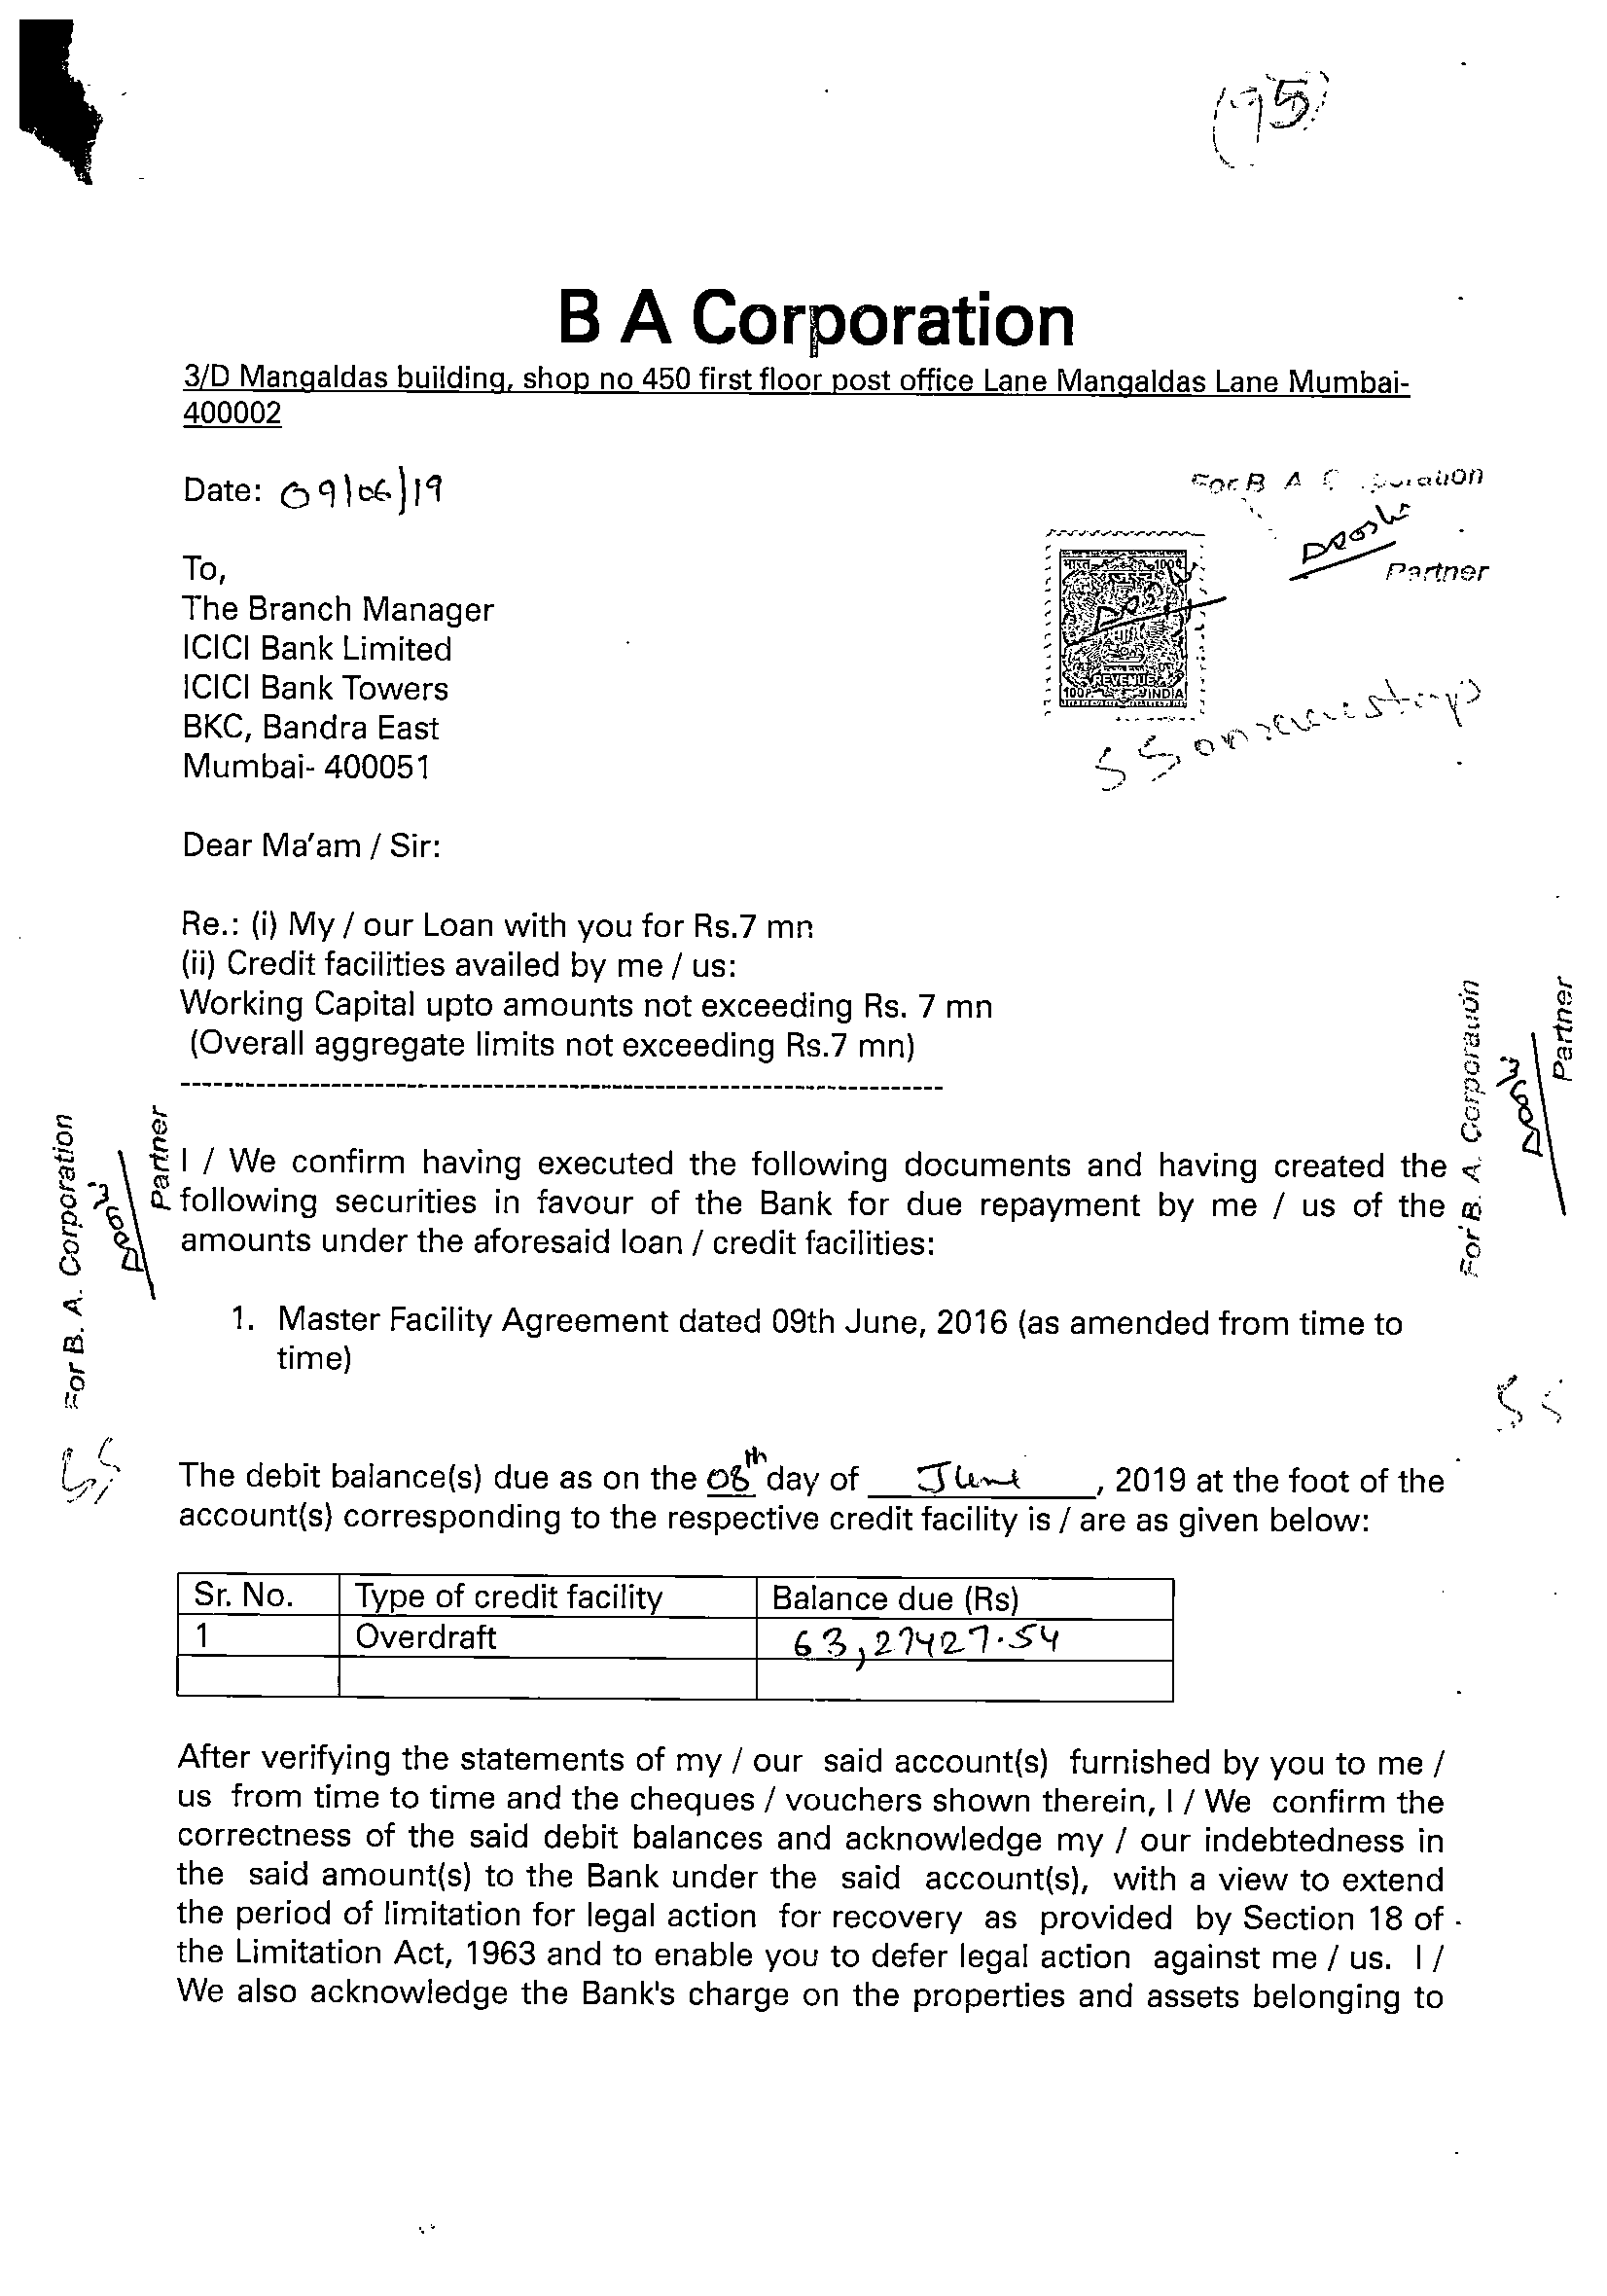 (95)
B A Corporation
3/D Mangaldas building, shop no 450 first floor post office Lane Mangaldas Lane Mumbai-
400002
Date: 09/06/19
For B A Corporation
Partner
REVENUE
100P. INDIA
SS on revenue stamp
To,
The Branch Manager
ICICI Bank Limited
ICICI Bank Towers
BKC, Bandra East
Mumbai- 400051
Dear Ma'am / Sir:
Re.: (i) My / our Loan with you for Rs.7 mn
(ii) Credit facilities availed by me / us:
Working Capital upto amounts not exceeding Rs. 7 mn
(Overall aggregate limits not exceeding Rs.7 mn)
For B. A. Corporation
Partner
For B. A. Corporation
Partner
I / We confirm having executed the following documents and having created the
following securities in favour of the Bank for due repayment by me / us of the
amounts under the aforesaid loan / credit facilities:
1. Master Facility Agreement dated 09th June, 2016 (as amended from time to
time)
SS
SS
The debit balance(s) due as on the 08th day of June, 2019 at the foot of the
account(s) corresponding to the respective credit facility is / are as given below:
Sr. No. Type of credit facility Balance due (Rs)
1 Overdraft 63,27427.54
After verifying the statements of my / our said account(s) furnished by you to me /
us from time to time and the cheques / vouchers shown therein, I / We confirm the
correctness of the said debit balances and acknowledge my / our indebtedness in
the said amount(s) to the Bank under the said account(s), with a view to extend
the period of limitation for legal action for recovery as provided by Section 18 of
the Limitation Act, 1963 and to enable you to defer legal action against me / us. I /
We also acknowledge the Bank's charge on the properties and assets belonging to